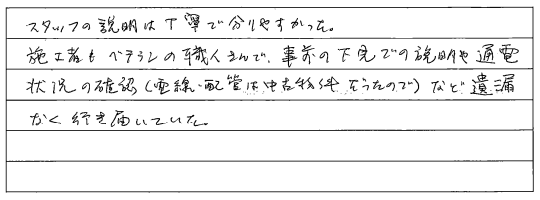 スタッフの説明は丁寧で分りやすかった。
施工者もベテランの職人さんで、事前の下見での説明や通電
状況の確認(電線・配管は中古物件だったので)など遺漏
なく行き届いていた。